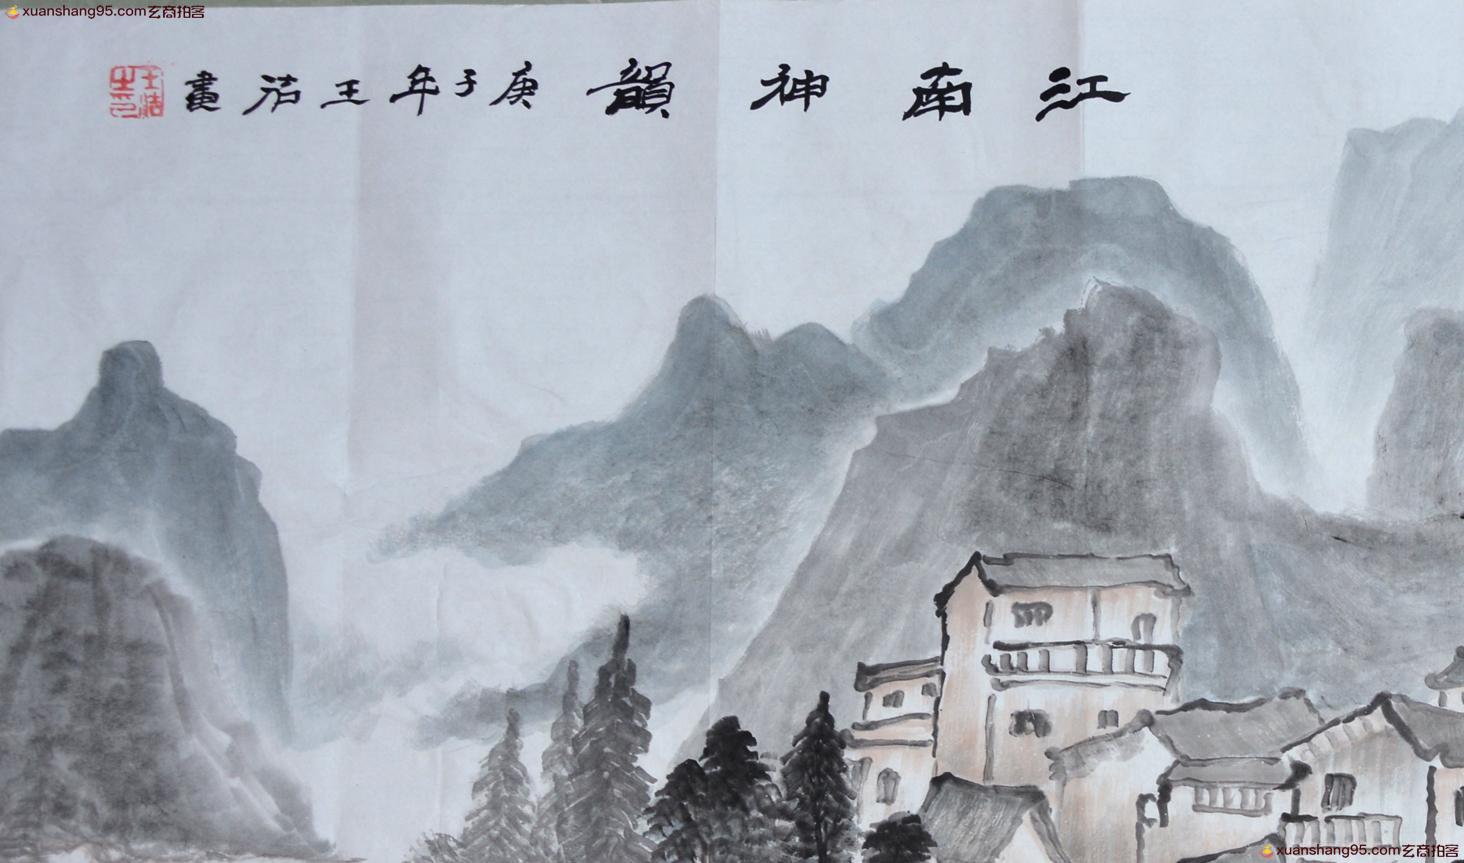 xuanshang95.com玄商拍客
江南神韻庚子年王洁畫
王洁之印
xuanshang95.com玄商拍客